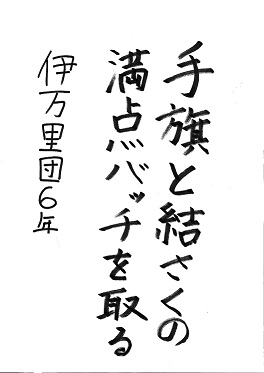 手旗と結さくの
満点バッチを取る
伊万里団6年